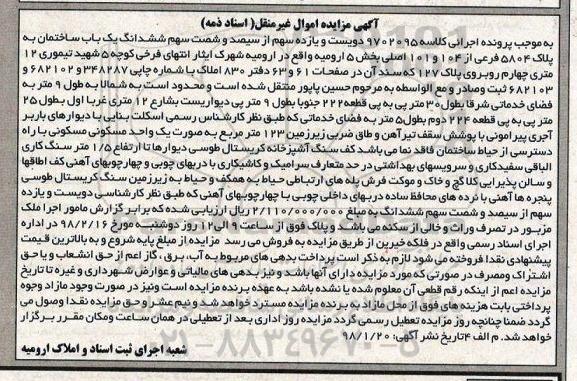 آگهی مزایده اموال غیر منقل( اسناد ذمه)
به موجب پرونده اجرائی کلاسه ۹۷۰۲۰۹۵ دویست و یازده سهم از سیصد و شصت سهم ششدانگ یک باب ساختمان به
پلاک ۵۸۰۴ فرعی از ۱۰۴ و ۱۰۱ اصلی بخش ۵ ارومیه واقع در ارومیه شهرک ایثار انتهای فرخی کوچه ۵ شهید تیموری ۱۲
متری چهارم روبروی پلاک ۱۲۷ که سند آن در صفحات ۶۱ و ۶۳ دفتر ۸۳۰ املاک با شماره چاپی ۳۴۸۲۸۷ و ۶۸۲۱۰۲ و
۶۸۲۱۰۳ ثبت وصادر و مع الواسطه به مرحوم حسین پاپور منتقل شده است و محدود است به شمالا به طول ۹ متر به
فضای خدماتی شرقا بطول ۳۰ متر پی به پی قطعه ۲۲۲ جنوبا بطول ۹ متر پی دیواریست بشارع ۱۲ متری غربا اول بطول ۲۵
متر پی به پی قطعه ۲۲۴ دوم بطول ۵ متر به فضای خدماتی که طبق نظر کارشناس رسمی اسکلت بنایی با دیوارهای باربر
آجری پیرامونی با پوشش سقف تیرآهن و طاق ضربی زیرزمین ۱۲۳ متر مربع به صورت یک واحد مسکونی مسکونی با راه
دسترسی از حیاط ساختمان فاقد نما می باشد کف سنگ آشپزخانه کریستال طوسی دیوارها تا ارتفاع ۱/۵ متر سنگ کاری
الباقی سفیدکاری و سرویسهای بهداشتی در حد متعارف سرامیک و کاشیکاری با دربهای چوبی و چهارچوبهای آهنی کف اطاقها
و سالن پذیرایی کلا گچ و خاک و موکت فرش پله های ارتباطی حیاط به همکف و حیاط به زیرزمین سنگ کریستال طوسی
پنجره ها آهنی با نرده های محافظ ساده دربهای داخلی چوبی با چهارچوبهای آهنی که طبق نظر کارشناسی دویست و یازده
سهم از سیصد و شصت سهم ششدانگ به مبلغ ۲/۱۱۰/۰۰۰/۰۰۰ ریال ارزیابی شده که برابر گزارش مامور اجرا ملک
مزبور در تصرف وراث و خالی از سکنه می باشد و پلاک فوق از ساعت ۹ الی ۱۲ روز دوشنبه مورخ ۹۸/۲/۱۶ در اداره
اجرای اسناد رسمی واقع در فلکه خیرین از طریق مزایده به فروش می رسد مزایده از مبلغ پایه شروع و به بالاترین قیمت
پیشنهادی نقدا فروخته می شود لازم به ذکر است پرداخت بدهی های مربوط به آب، برق ، گاز اعم از حق انشعاب و یا حق
اشتراک و مصرف در صورتی که مورد مزایده دارای آنها باشد و نیز بدهی های مالیاتی و عوارض شهرداری و غیره تا تاریخ
مزایده اعم از اینکه رقم قطعی آن معلوم شده یا نشده باشد به عهده برنده مزایده است ونیز در صورت وجود مازاد وجوه
پرداختی بابت هزینه های فوق از محل مازاد به برنده مزایده مسترد خواهد شد و نیم عشر و حق مزایده نقدا وصول می
گردد ضمنا چنانچه روز مزایده تعطیل رسمی گردد مزایده روز اداری بعد از تعطیلی در همان ساعت ومکان مقرر برگزار
خواهد شد. م الف ۴ تاریخ نشر آگهی: ۹۸/۱/۲۰
شعبه اجرای ثبت اسناد و املاک ارومیه
۰۲۱-۸۸۳۴۹۶۷۰-۵